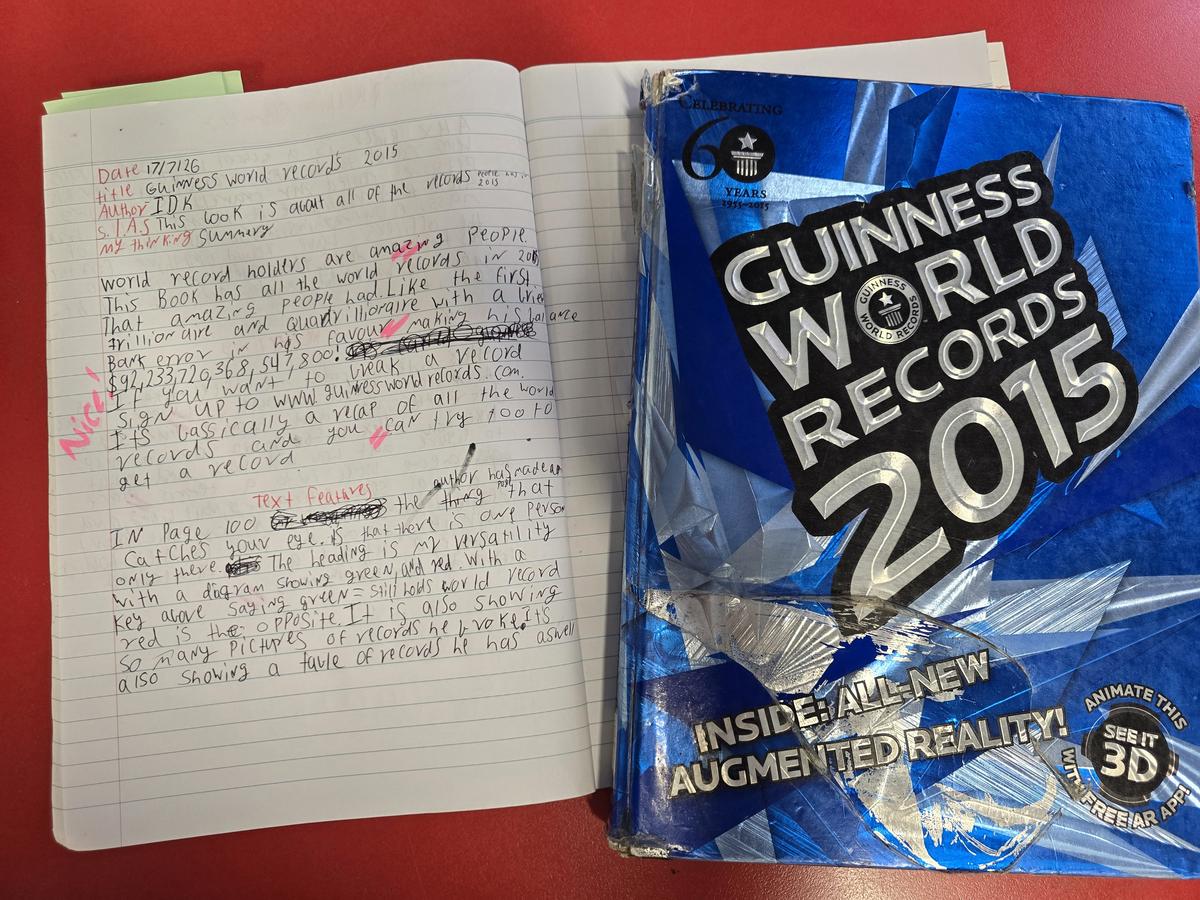 Date 17/7/26
title Guinness world records 2015
Author IDK
S.I.A.S This book is about all of the records people has in 2015
my thinking Summery
world record holders are amazing people.
This Book has all the world records in 2015
That amazing people had. Like the first
trillionaire and quadrillionaire with a brief
Bank error in his favour making his balance
$92,233,720,368,547,800!
If you want to break a record
Sign up to www.guinnessworldrecords.com.
Its bassically a recap of all the world
records and you can try too to
get a record.
Nice!
Text Features
IN Page 100 the author has made a
thing that
Catches your eye. Is that there is one person
only there. The heading is mr versatility
with a diagram showing green, and red with a
key above saying green = still holds world record
red is the opposite. It is also showing
so many pictures of records he broke. Its
also showing a table of records he has aswell
CELEBRATING
60
YEARS
1955-2015
GUINNESS
WORLD
RECORDS
2015
GUINNESS
WORLD RECORDS
INSIDE: ALL-NEW
AUGMENTED REALITY!
ANIMATE THIS
SEE IT
3D
WITH FREE AR APP!